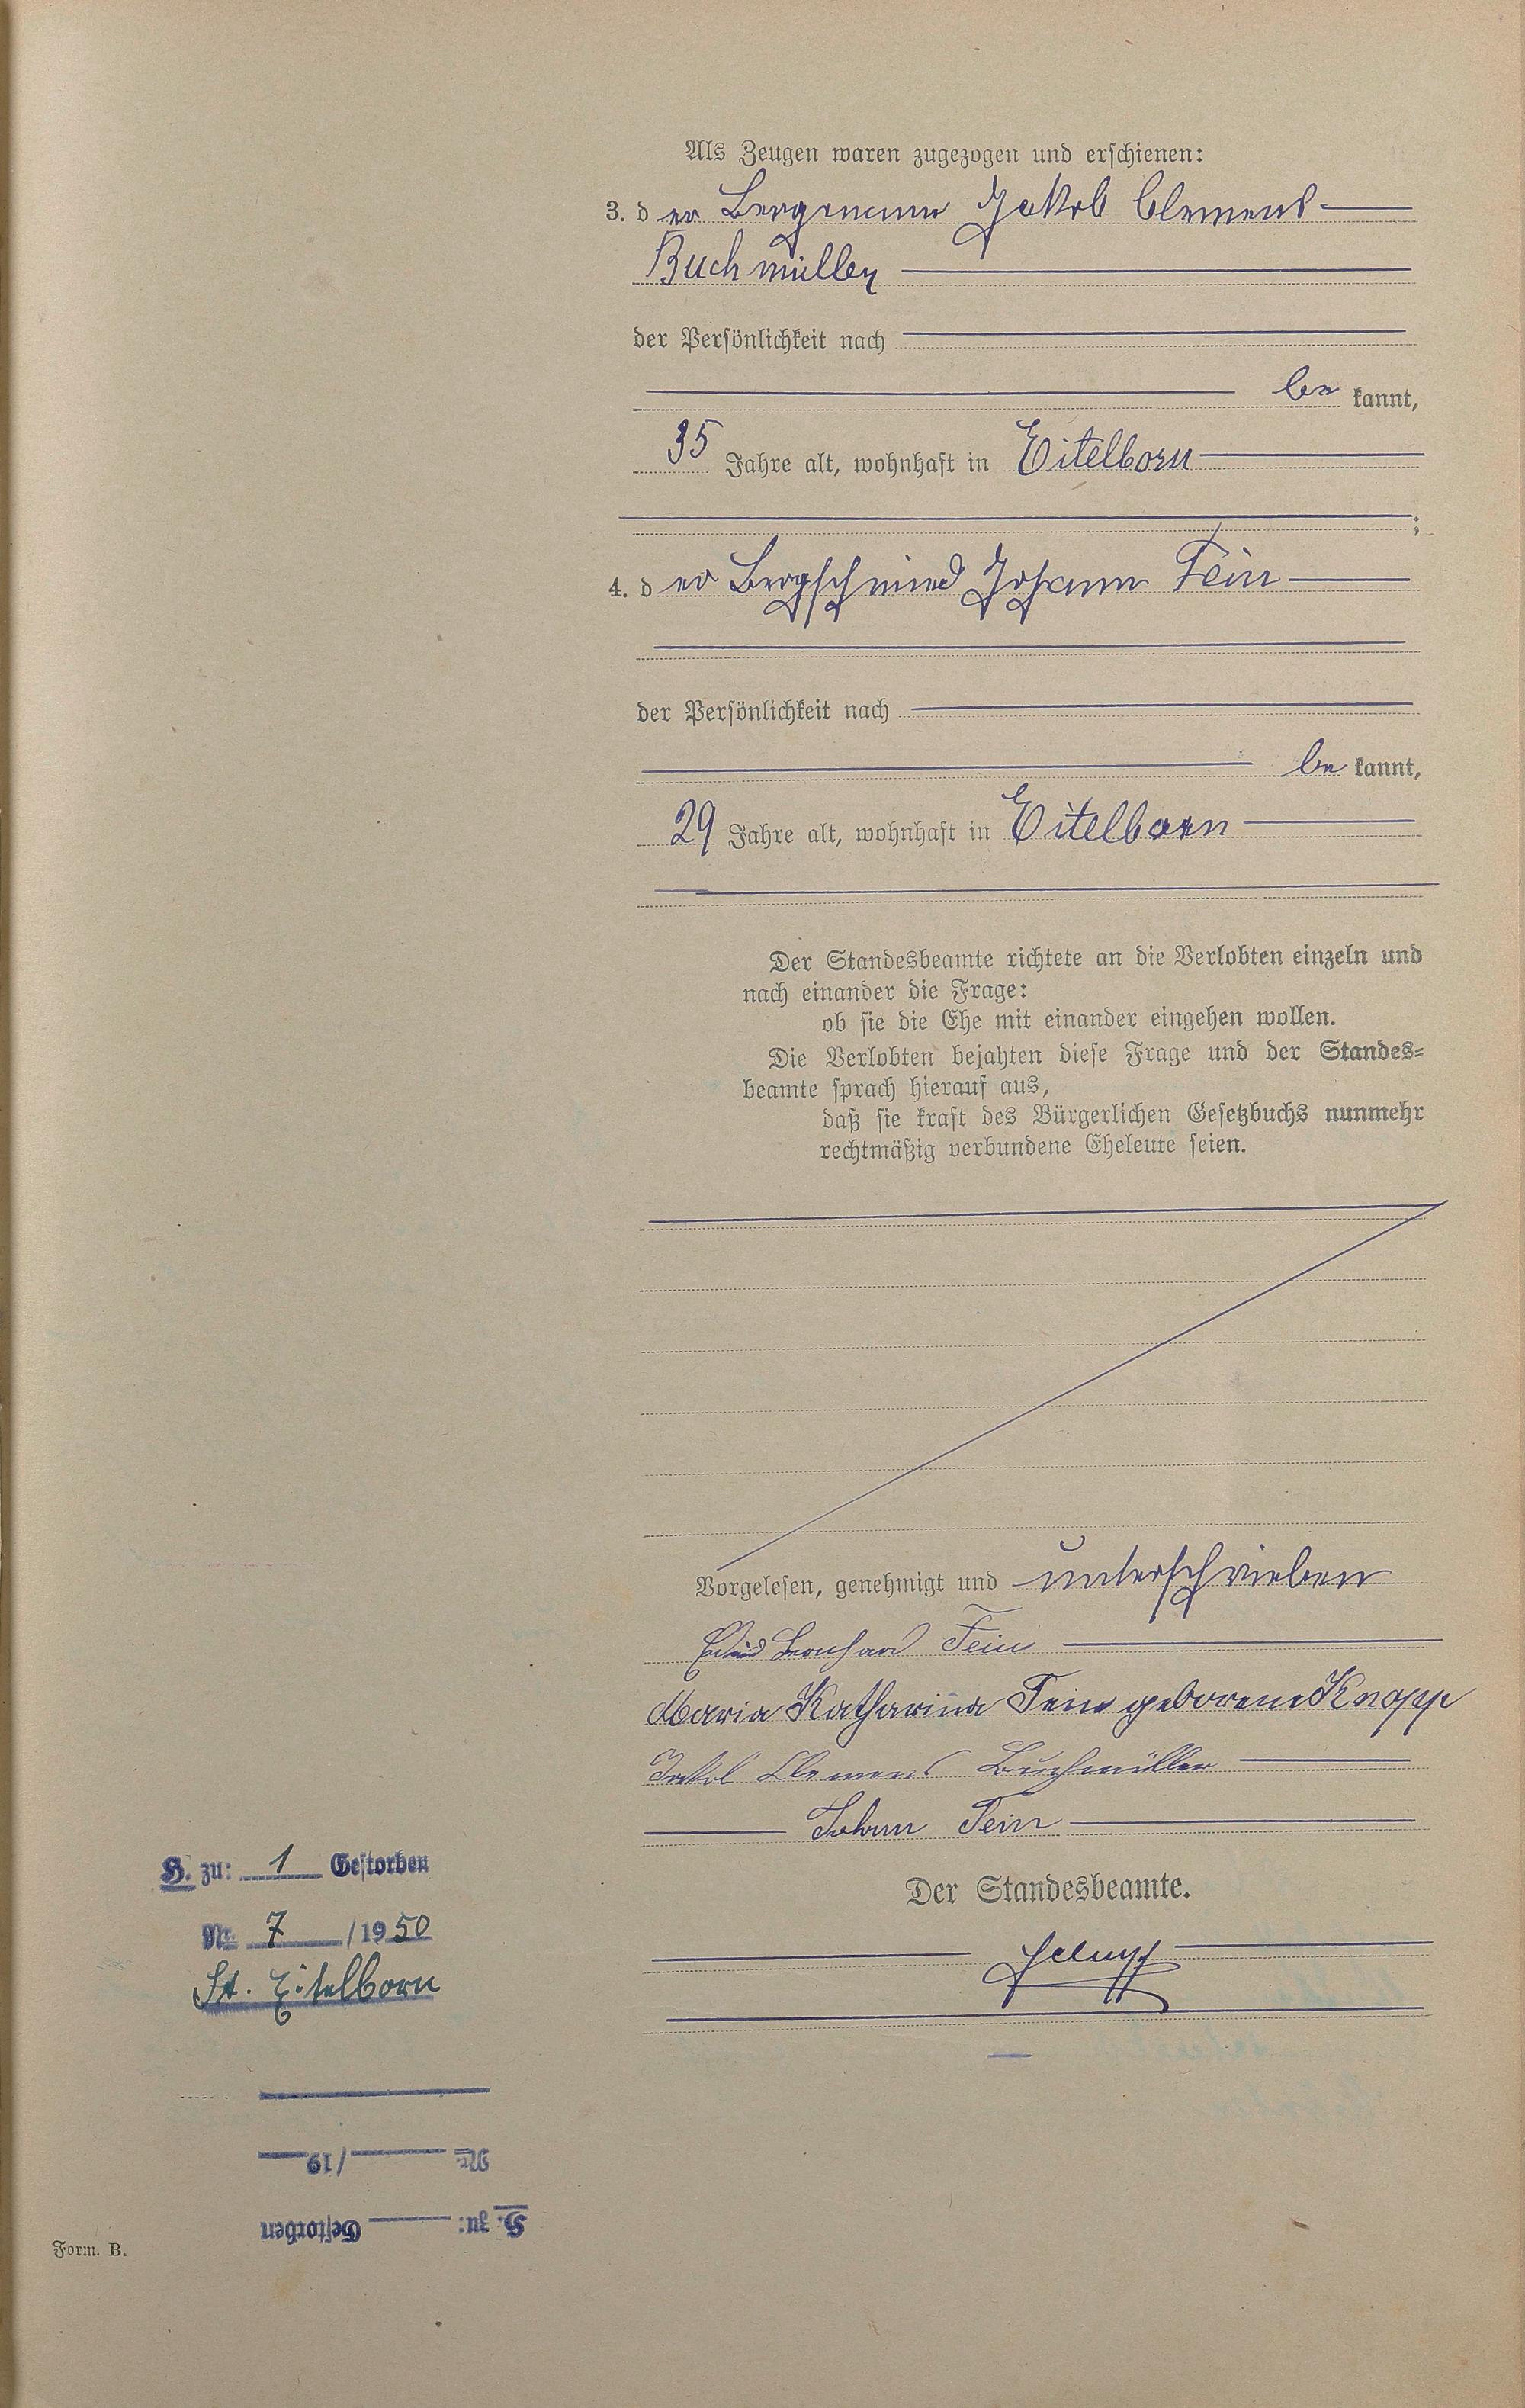 Als Zeugen waren zugezogen und erschienen:
3. der Bergmann Jakob Clemens
Buchmüller
der Persönlichkeit nach
be kannt,
35 Jahre alt, wohnhaft in Eitelborn
;
4. der Bergschmied Johann Fein
der Persönlichkeit nach
be kannt,
29 Jahre alt, wohnhaft in Eitelborn
Der Standesbeamte richtete an die Verlobten einzeln und
nach einander die Frage:
ob sie die Ehe mit einander eingehen wollen.
Die Verlobten bejahten diese Frage und der Standes=
beamte sprach hierauf aus,
daß sie kraft des Bürgerlichen Gesetzbuchs nunmehr
rechtmäßig verbundene Eheleute seien.
Vorgelesen, genehmigt und unterschrieben
Fein
Maria Katharina Fein geborene Knopp
Jakob Clemens Buchmüller
Johann Fein
Der Standesbeamte.
H. zu: 1 Gestorben
Nr. 7 /1950
St. Eitelborn
H. zu: Gestorben
Nr. /19
Form. B.